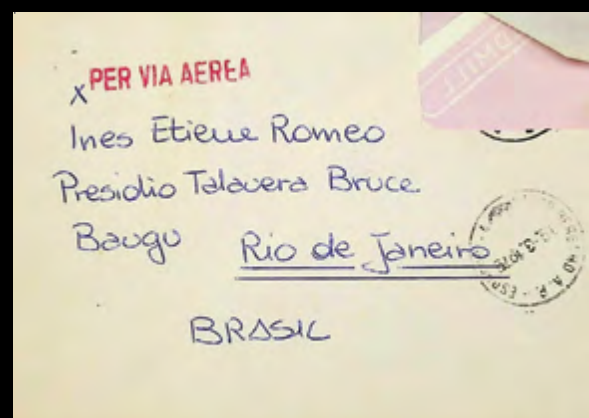 PER VIA AEREA
X
Ines Etiene Romeo
Presidio Talavera Bruce.
Baugu Rio de Janeiro
BRASIL